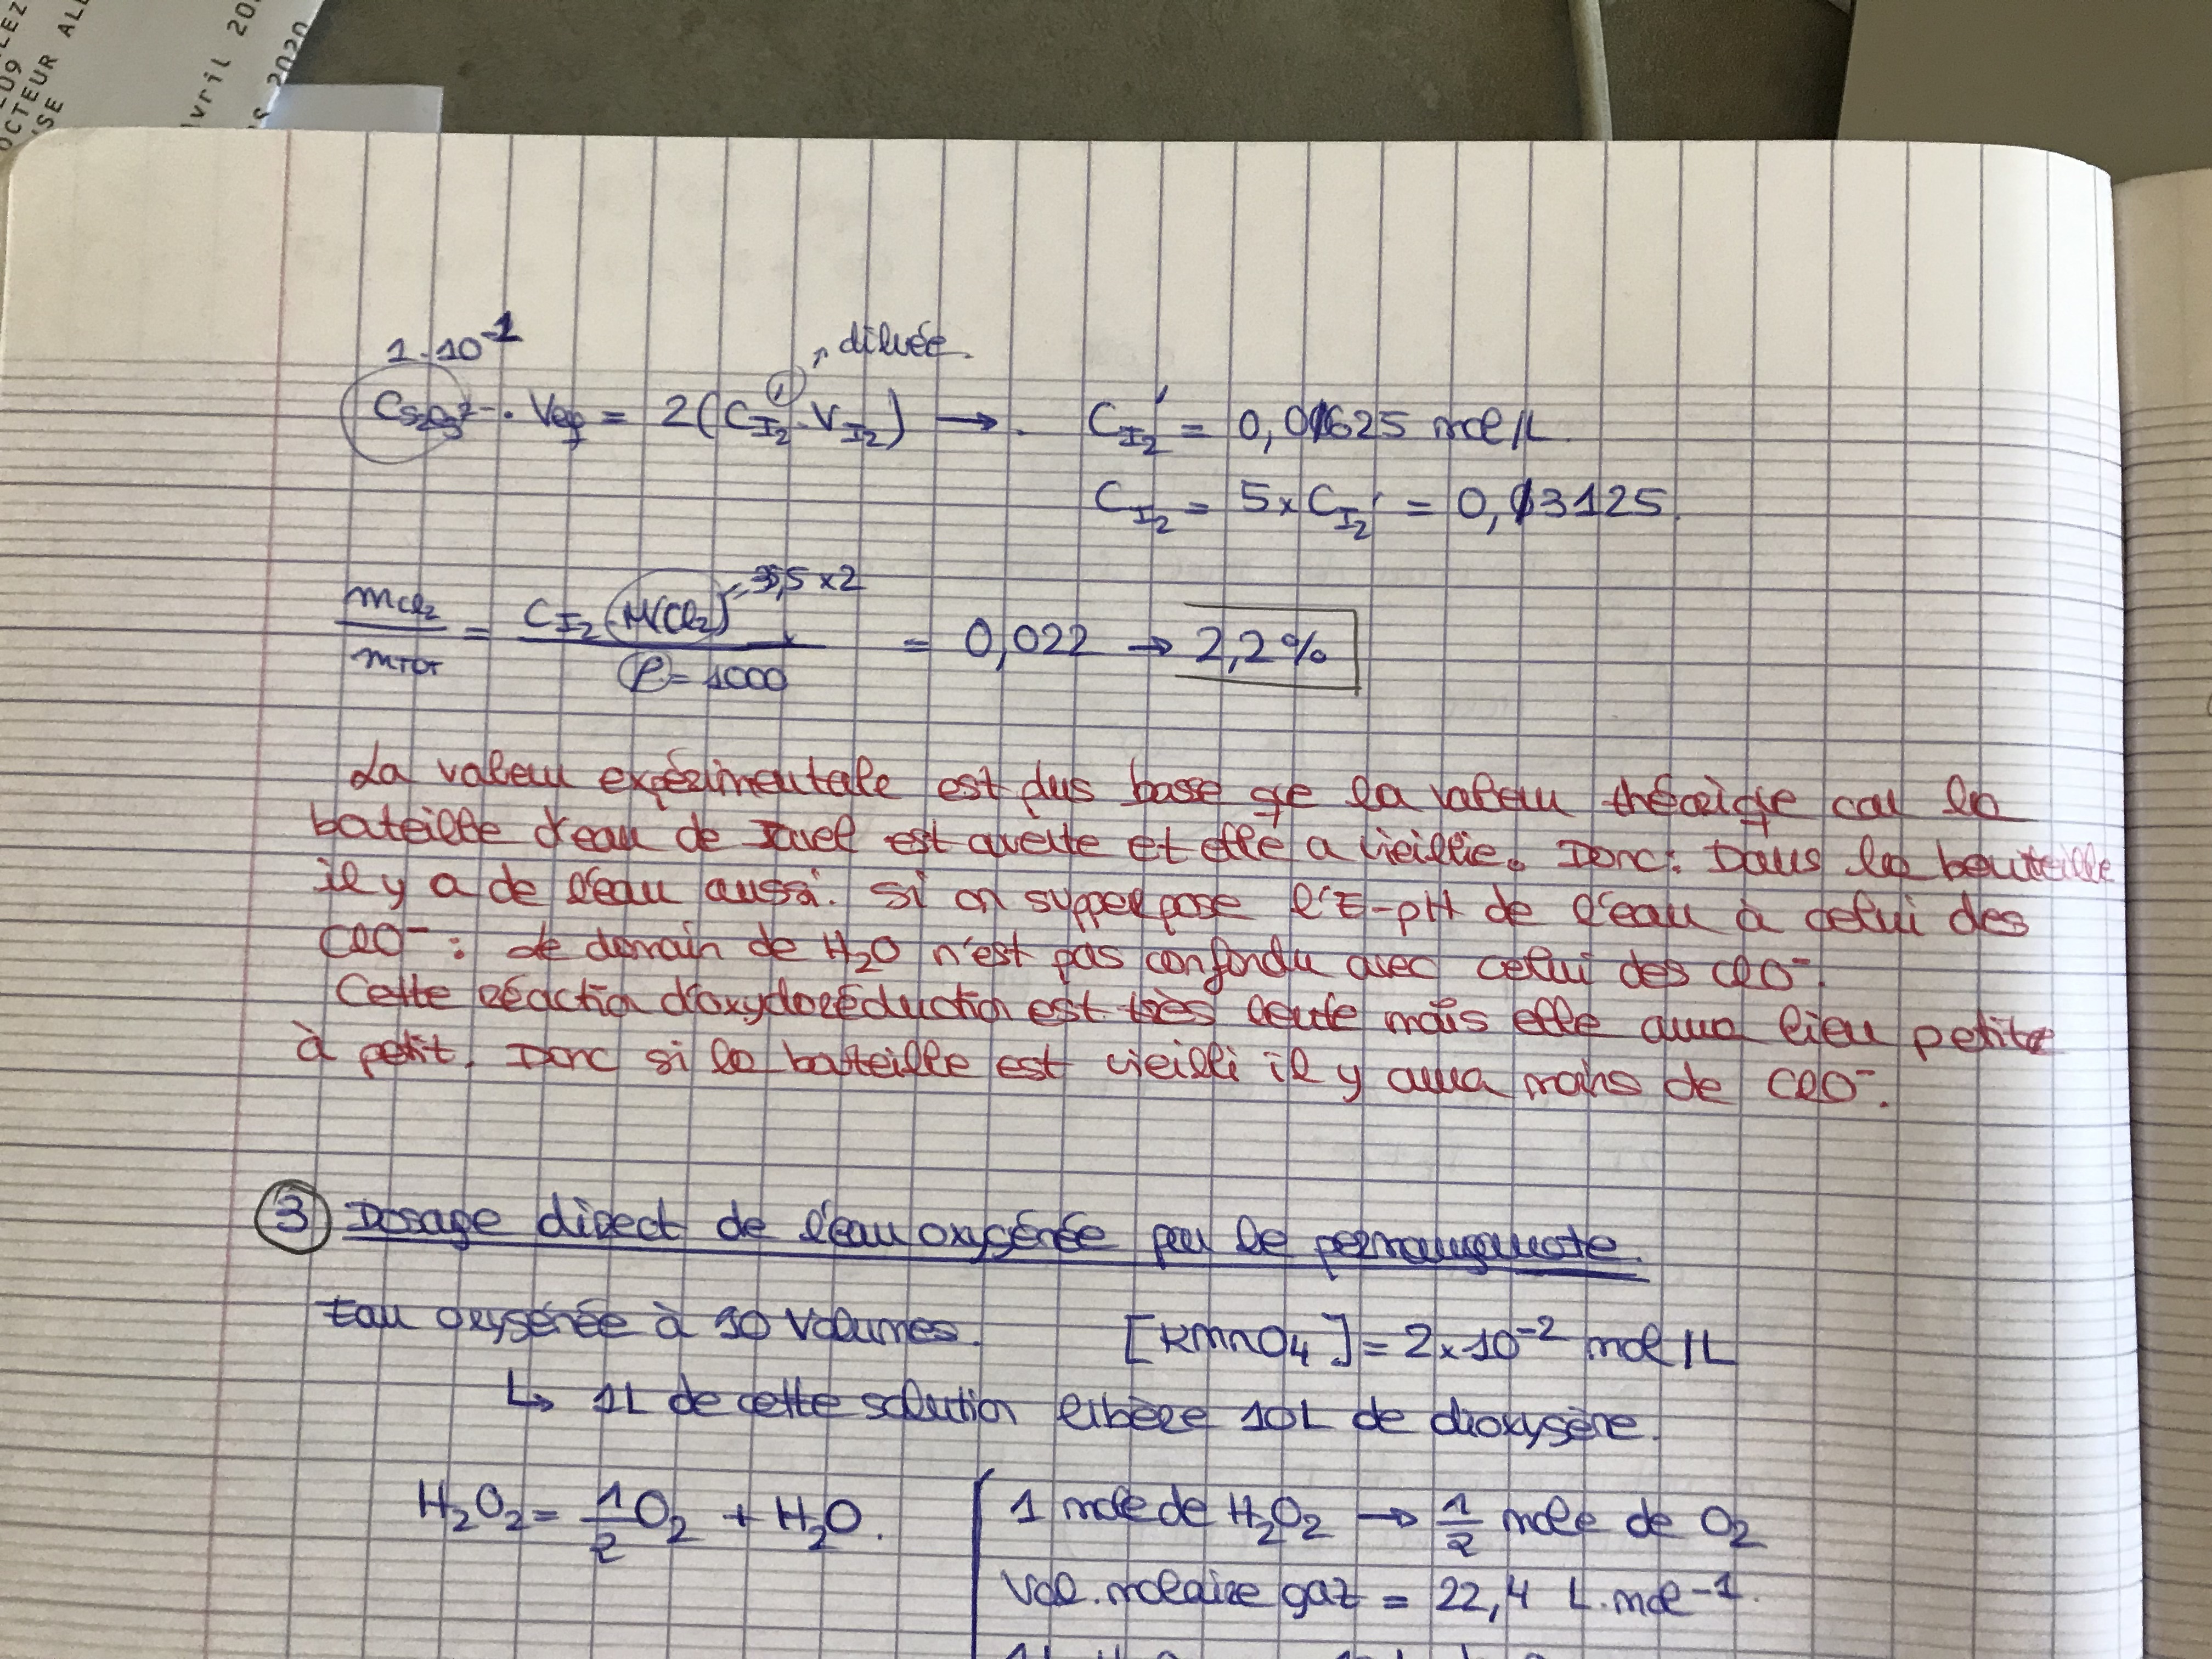 LEZ
L09
OCTEUR ALL
ISE
vril 20
2020
1.10⁻¹
diluée.
C_{S₂O₃²⁻} · Veq = 2(C_{I₂}' · V_{I₂}) → . C_{I₂}' = 0,0625 mol/L
C_{I₂} = 5 x C_{I₂}' = 0,3125.
m_{Cl₂}/m_{TOT} = C_{I₂} · M(Cl₂) = 35,5 x 2 / ρ = 1000 = 0,022 → 2,2 %
La valeur expérimentale est plus basse qe la valeur théoriqe car la
bouteille d'eau de Javel est ouverte et elle a vieillie. Donc: Dans la bouteille
il y a de l'eau aussi. Si on supperpose l'E-pH de l'eau à celui des
ClO⁻ : le domain de H₂O n'est pas confondu avec celui des ClO⁻.
Cette réaction d'oxydoréduction est très lente mais elle aura lieu petit
à petit. Donc si la bouteille est vieilli il y aura moins de ClO⁻.
③ Dosage direct de l'eau oxygénée par le permanganate.
Eau oxygénée à 10 Volumes. [KMnO₄] = 2 x 10⁻² mol/L
↳ 1L de cette solution libère 10L de dioxygène.
H₂O₂ = 1/2 O₂ + H₂O. 1 mole de H₂O₂ → 1/2 mole de O₂
Vol. molaire gaz = 22,4 L.mol⁻¹.